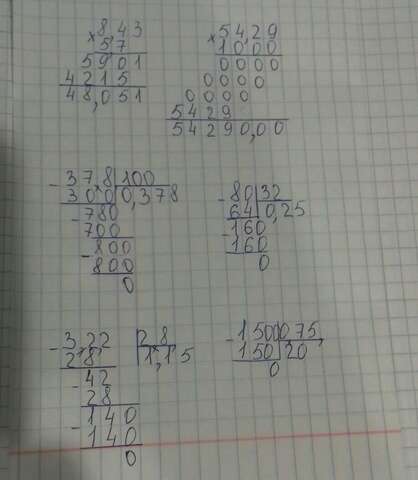 8,43
× 5,7
5901
4215
48,051
54,29
× 1000
0000
0000
0000
5429
54290,00
- 37,8 | 100
300 | 0,378
- 780
700
- 800
800
0
- 80 | 32
64 | 0,25
- 160
160
0
- 3,22 | 2,8
2 8 | 1,15
- 42
28
- 140
140
0
- 1500 | 075,
150 | 20
0